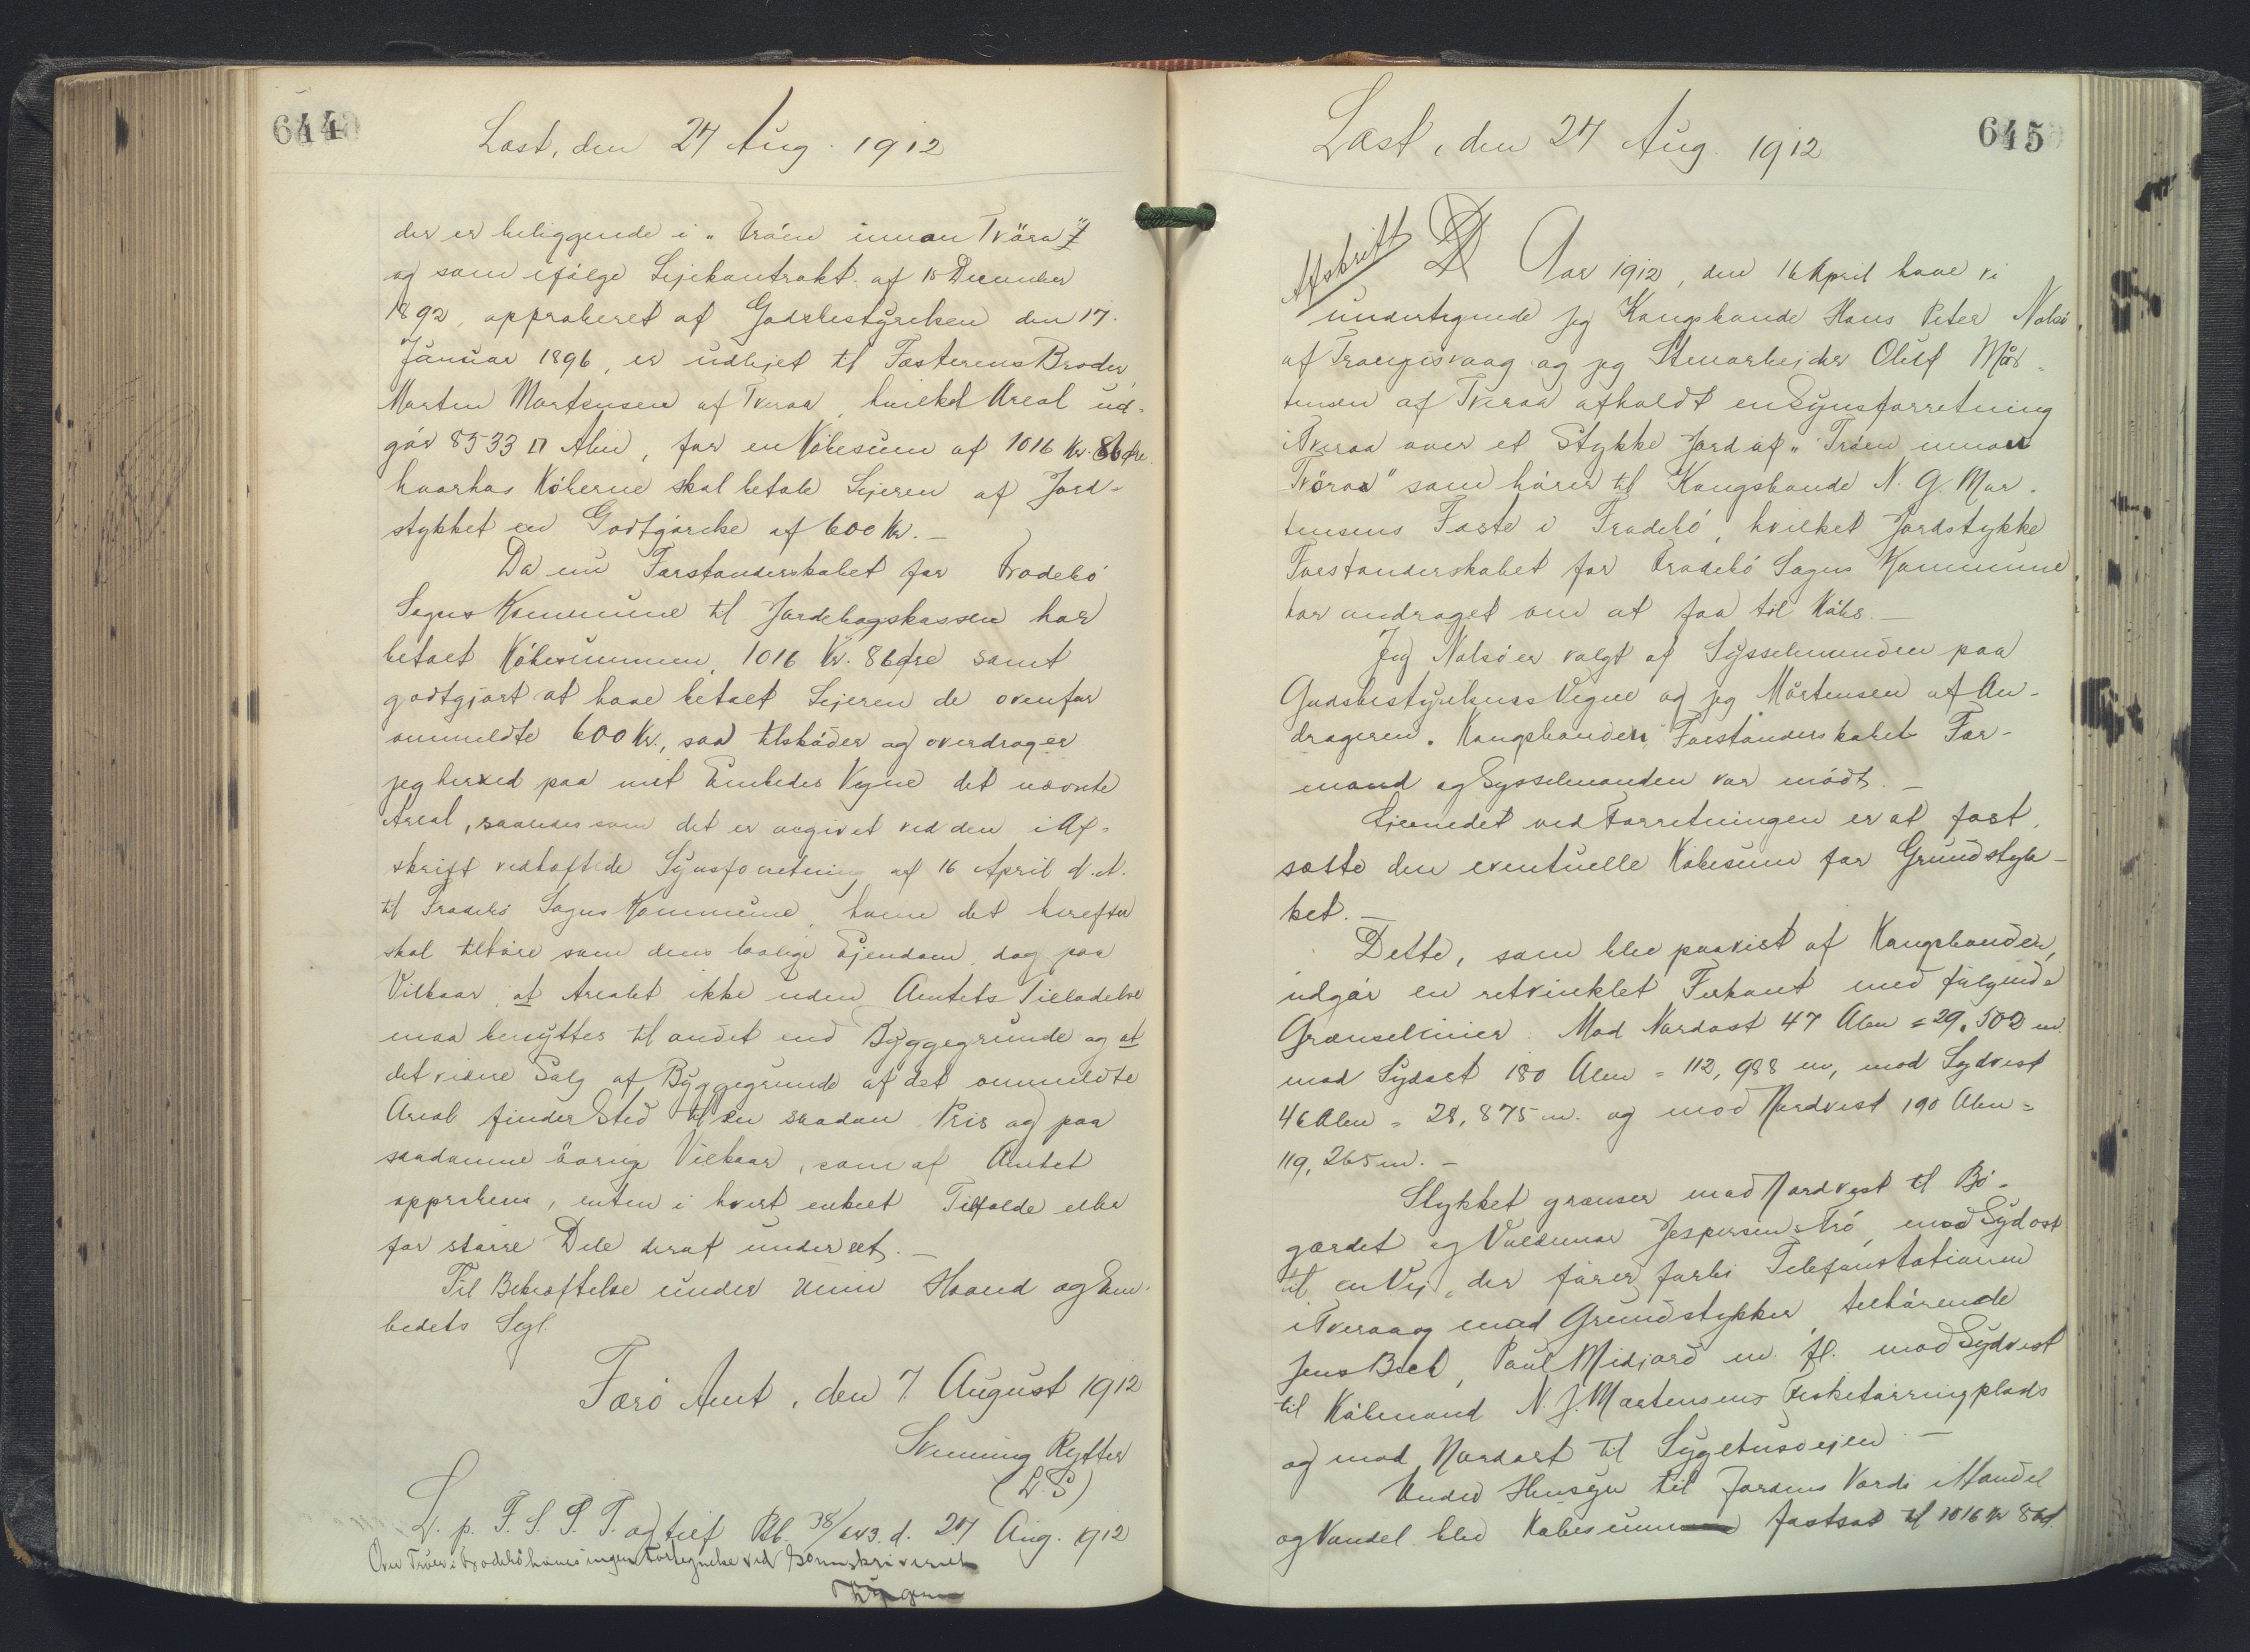 644
Læst, den 27 Aug. 1912
der er beliggende i "Tröen innan Tvöraa"
og som ifölge Lejekontrakt af 15 December
1892, approberet af Godsbestyrelsen den 17.
Januar 1896, er udlejet til Fæsterens Broder
Morten Mortensen af Tveraa, hvilket Areal ud-
gör 8533 □ Alen, for en Köbesum af 1016 Kr. 86 Øre
hvorhos Köberne skal betale Lejeren af Jord-
stykket en Godtgörelse af 600 Kr. –
Da nu Forstanderskabet for Frodebö
Sogns Kommune til Jordebogskassen har
betalt Köbesummen, 1016 Kr. 86 Øre samt
godtgjort at have betalt Lejeren de ovenfor
ommeldte 600 Kr., saa tilsköder og overdrager
jeg herved paa mit Embedes Vegne det nævnte
Areal, saaledes som det er angivet ved den i Af-
skrift vedhæftede Synsforretning af 16 April d. A.
til Frodebö Sogns Kommune, hvem det herefter
skal tilhöre som dens lovlige Ejendom, dog paa
Vilkaar, at Arealet ikke uden Amtets Tilladelse
maa benyttes til andet end Byggegrunde og at
det videre Salg af Byggegrunde af det ommeldte
Areal finder Sted til en saadan Pris og paa
saadanne övrige Vilkaar, som af Amtet
approberes, enten i hvert enkelt Tilfælde eller
for större Dele deraf under eet. –
Til Bekræftelse under min Haand og Em-
bedets Segl.
Færö Amt, den 7 August 1912
Svenning Rytter
(L. S)
L. p. F. S. P. T. og tilf Pb. 38/643. d. 27 Aug. 1912
Over Tröer i Frodebö haves ingen Fortegnelse ved Sorenskriveriet
645
Læst, den 27 Aug. 1912
Afskrift
Aar 1912, den 16 April have vi
undertegnede jeg Kongsbonde Hans Peter Nolsö
af Trangisvaag og jeg Stenarbejder Oluf Mår-
tensen af Tveraa afholdt en Synsforretning
i Tveraa over et Stykke Jord af "Tröen innan
Tvöraa" som hörer til Kongsbonde N. G. Mor-
tensens Fæste i Frodebö, hvilket Jordstykke
Forstanderskabet for Frodebö Sogns Kommune
har andraget om at faa til Köbs. –
Jeg Nolsö er valgt af Sysselmanden paa
Godsbestyrelsens Vegne og jeg Mårtensen af An-
drageren. Kongsbonden, Forstanderskabets For-
mand og Sysselmanden var mödt. –
Öiemedet ved Forretningen er at fast-
sætte den eventuelle Köbesum for Grundstyk-
ket. –
Dette, som blev paavist af Kongsbonden,
udgör en retvinklet Firkant med fölgende
Grænselinier: Mod Nordost 47 Alen = 29,502 m.
mod Sydost 180 Alen = 112,988 m, mod Sydvest
46 Alen = 28,875 m. og mod Nordvest 190 Alen =
119,265 m. –
Stykket grænser mod Nordvest til Bö-
gærdet og Valdemar Jespersens Trö, mod Sydost
til en Vej, der förer forbi Telefonstationen
i Tveraa og mod Grundstykker, tilhörende
Jens Beck, Poul Midjord m. fl. mod Sydvest
til Köbmand N. J. Mortensens Fisketörringsplads
og mod Nordost til Sygehusvejen –
Under Hensyn til Jordens Værdi i Handel
og Vandel blev Köbesummen fastsat til 1016 Kr 86